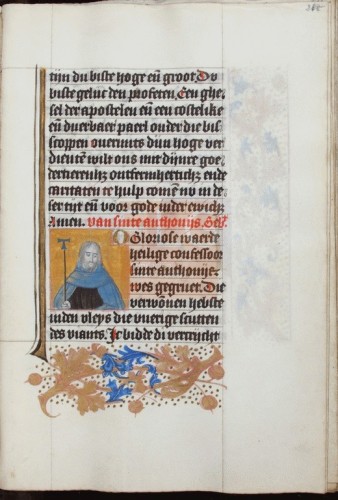 tijn du biste hoge en̄ groot. Du
biste geluc den profeten, Een ghe,
sel der apostelen en̄ een costelike
en̄ duerbaer paerl onder die bis,
scoppen ouermits dijn hoge ver
dienten wilt ons mit dijnre goe
dertierenh3 ontfermhertich3 ende
caritaten te hulp comen nv in de
sen tijt en̄ voor gode inder ewich3
Amen. van sinte anthonijs. Geb3.
O Gloriose waerde
heilige confessoor
sinte anthonise.
wes gegruet. Die
verwonen hebste
inden vleys die vuerige scutten
des viants. Ic bidde di vercrycht